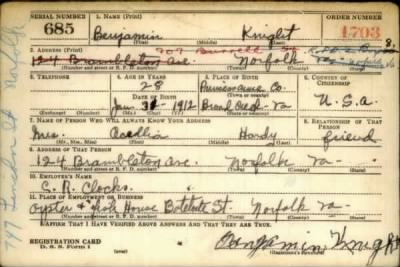 SERIAL NUMBER 1. NAME (Print) ORDER NUMBER
685 Benjamin Knight 1703
(First) (Middle) (Last)
2. ADDRESS (Print) 707 St
124 Brambleton Ave. Norfolk Va
(Number and street or R. F. D. number) (Town) (County) (State)
3. TELEPHONE 4. AGE IN YEARS 5. PLACE OF BIRTH 6. COUNTRY OF CITIZENSHIP
28 Princess Anne Co.
DATE OF BIRTH (Town or county)
Jan 1912 Va U.S.A.
(Exchange) (Number) (Mo.) (Day) (Yr.) (State or country)
7. NAME OF PERSON WHO WILL ALWAYS KNOW YOUR ADDRESS 8. RELATIONSHIP OF THAT PERSON
Mrs. Hardy friend
(Mr., Mrs., Miss) (First) (Middle) (Last)
9. ADDRESS OF THAT PERSON
124 Brambleton Ave. Norfolk Va
(Number and street or R. F. D. number) (Town) (County) (State)
10. EMPLOYER'S NAME
C. R. Clocks
11. PLACE OF EMPLOYMENT OR BUSINESS
Oyster & House Botetote St. Norfolk Va
(Number and street or R. F. D. number) (Town) (County) (State)
I AFFIRM THAT I HAVE VERIFIED ABOVE ANSWERS AND THAT THEY ARE TRUE.
REGISTRATION CARD
D. S. S. Form 1 Benjamin Knight